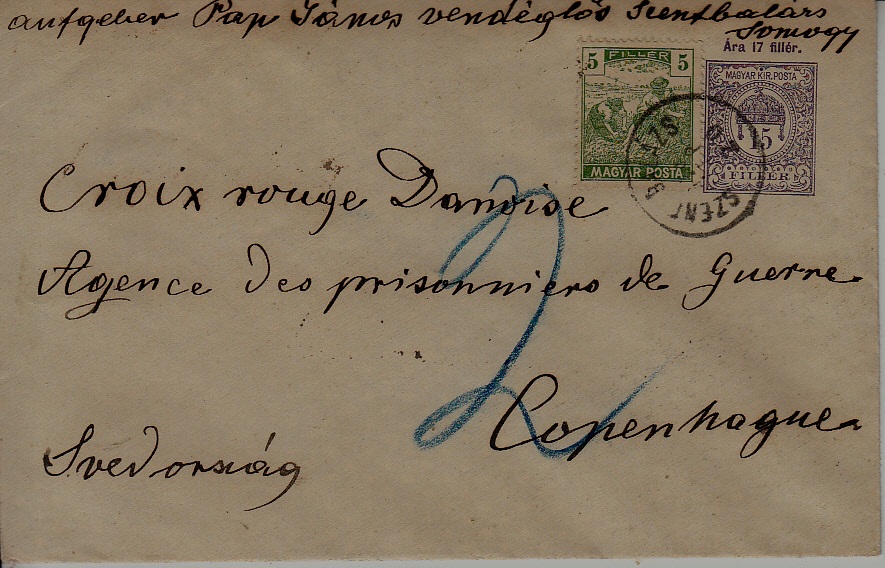 aufgeber Pap János vendéglős Szentbalázs
Somogy
Ára 17 fillér.
5 FILLÉR 5
MAGYAR POSTA
MAGYAR KIR. POSTA
15
FILLÉR
SZENT
Croix rouge Danoise
Agence des prisonniers de Guerre
2
Copenhague
Svedország